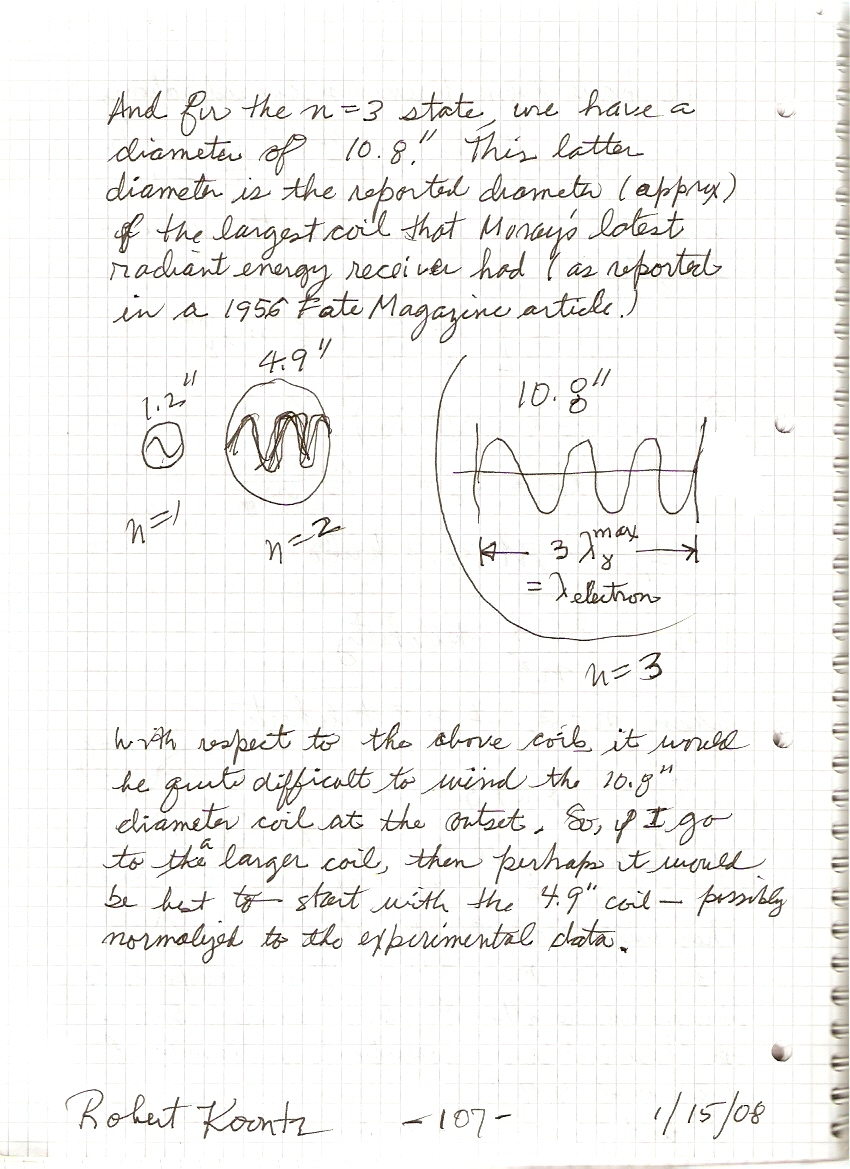 And for the n=3 state, we have a
diameter of 10.8". This latter
diameter is the reported diameter (approx)
of the largest coil that Moray's latest
radiant energy receiver had (as reported
in a 1956 Fate Magazine article.)
1.2"
4.9"
10.8"
n=1
n=2
3 λγ^max
= λelectron
n=3
With respect to the above coils it would
be quite difficult to wind the 10.8"
diameter coil at the outset. So, if I go
to a larger coil, then perhaps it would
be best to start with the 4.9" coil – possibly
normalized to the experimental data.
Robert Koontz -107- 1/15/08